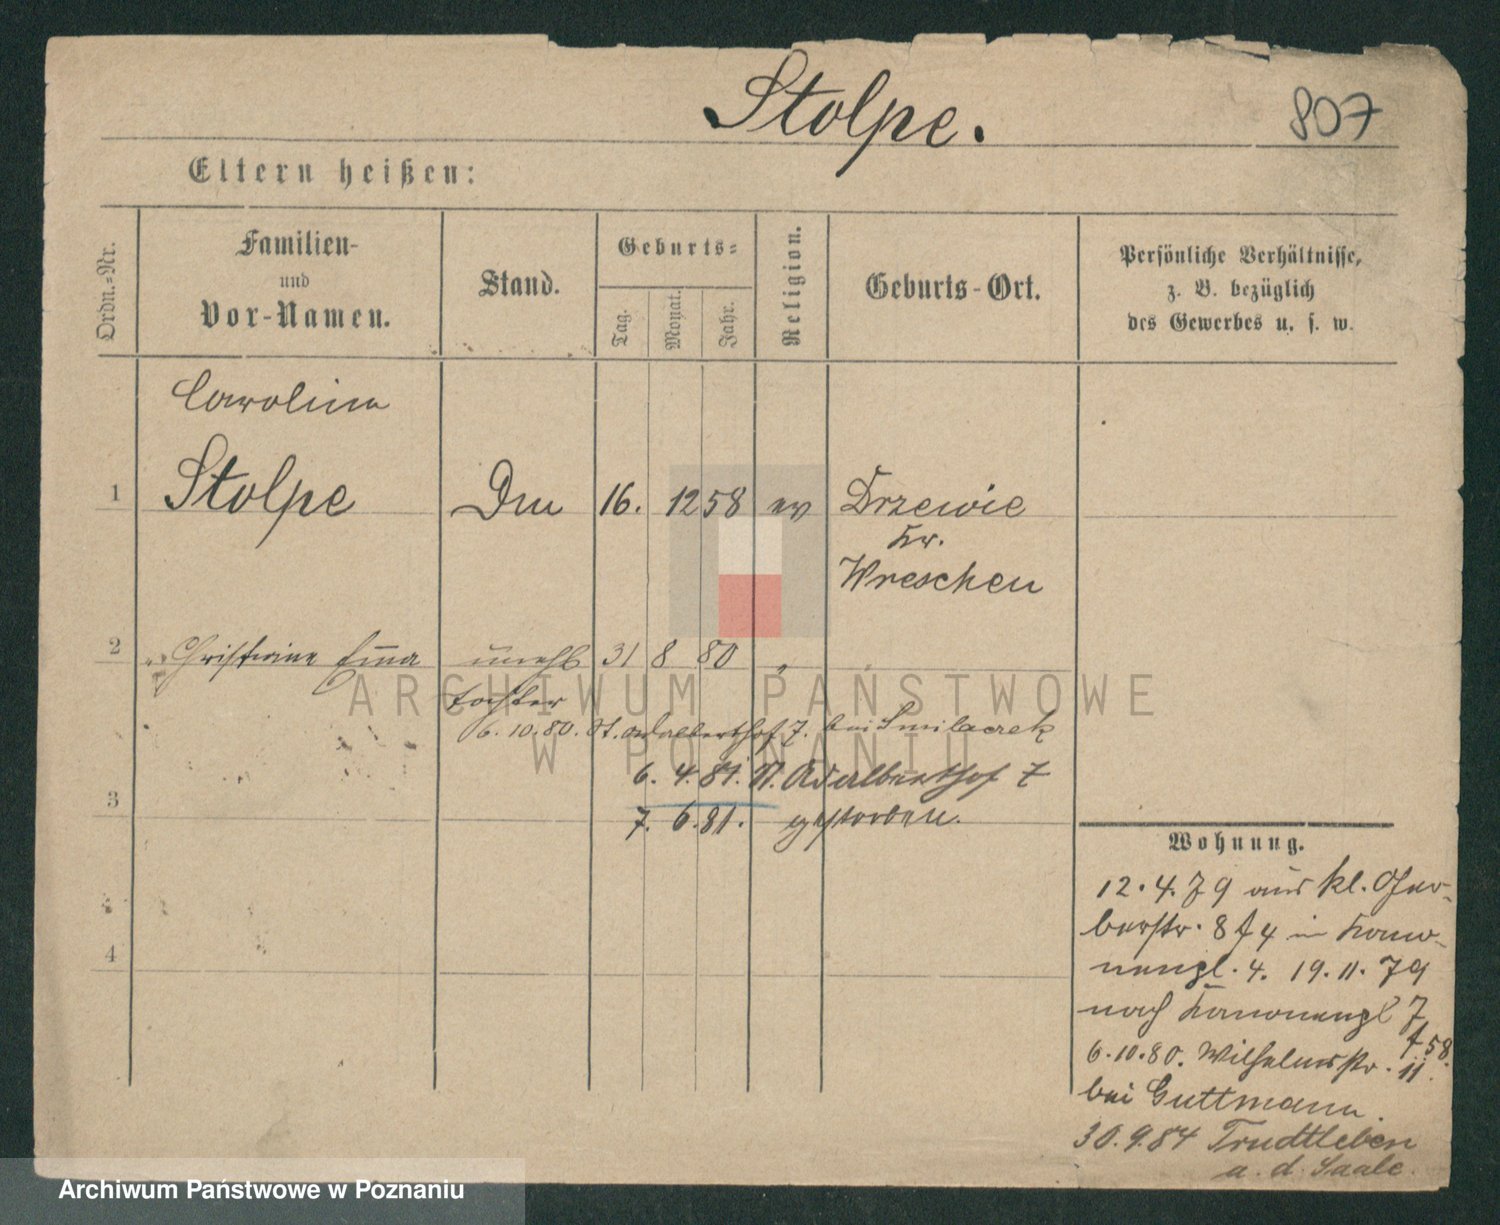 Stolpe.
807
Eltern heißen:
Ordn.-Nr.
Familien-
und
Vor-Namen.
Stand.
Geburts-
Tag.
Monat.
Jahr.
Religion.
Geburts-Ort.
Persönliche Verhältnisse,
z. B. bezüglich
des Gewerbes u. s. w.
Carolina
1 Stolpe 16. 12 58 ev Drzewie
Kr.
Wreschen
2 Christine Emma unehl 31 8 80 "
Tochter
6.10.80. St. Adalberthof 7. bei Smilaczek
6. 4. 81. St. Adalberthof 7
3 7. 6. 81. gestorben.
4
Wohnung.
12.4.79 aus kl. Ger-
berstr. 8 in Kano-
nenpl. 4. 19.11.79
nach Kanonenpl 7
6.10.80. Wilhelmstr. 11.
bei Guttmann.
30.9.84 Trudtleben
a. d. Saale.
ARCHIWUM PAŃSTWOWE
W POZNANIU
Archiwum Państwowe w Poznaniu